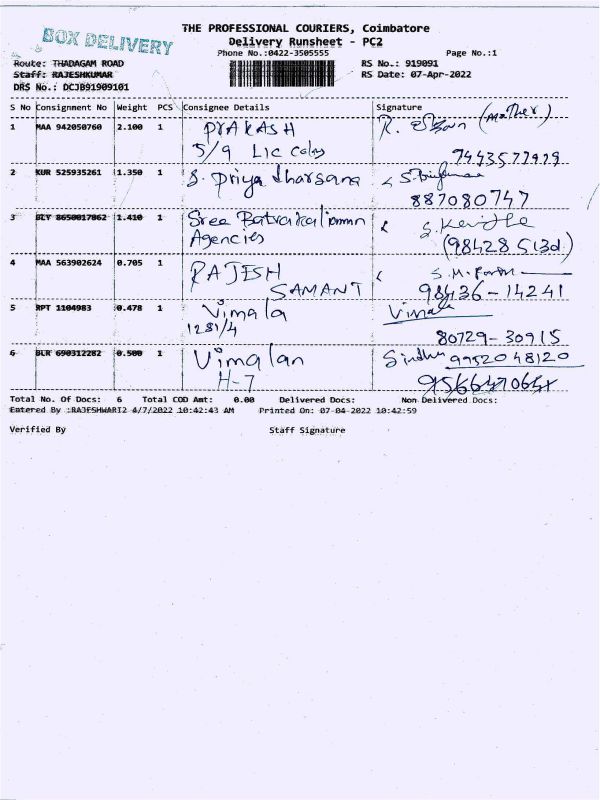 BOX DELIVERY
THE PROFESSIONAL COURIERS, Coimbatore
Delivery Runsheet - PC2
Phone No.:0422-3505555 Page No.:1
Route: THADAGAM ROAD RS No.: 919091
Staff: RAJESHKUMAR RS Date: 07-Apr-2022
DRS No.: DCJB91909101
S No Consignment No Weight PCS Consignee Details Signature
1 MAA 942050760 2.100 1 PRAKASH R. (Mother)
5/9 Lic Colny 7443577929
2 KUR 525935261 1.350 1 S. Priya dharsana
887080747
3 BLY 8650017862 1.410 1 Sree
Agencies (98428 5130)
4 MAA 563902624 0.705 1 RAJESH
SAMANT 98436-14241
5 RPT 1104983 0.478 1 Vimala Vimala
1281/4 80729-30915
6 BLR 690312282 0.500 1 Vimalan Sindhu 99520 48120
H-7
Total No. Of Docs: 6 Total COD Amt: 0.00 Delivered Docs: Non Delivered Docs:
Entered By :RAJESHWARI2 4/7/2022 10:42:43 AM Printed On: 07-04-2022 10:42:59
Verified By Staff Signature